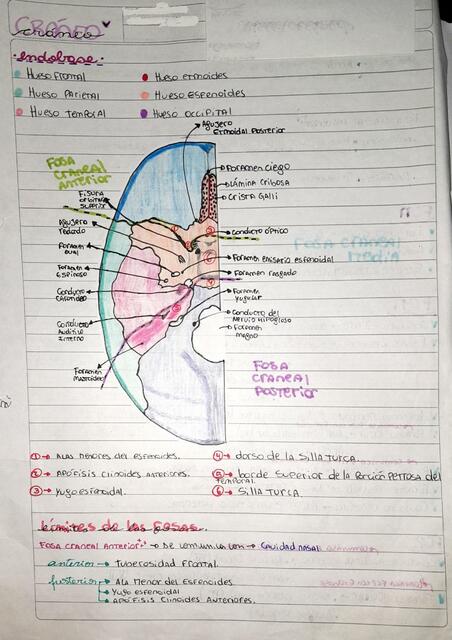 CRANEO
cráneo
endobase:
Hueso Frontal
Hueso Etmoides
Hueso Parietal
Hueso Esfenoides
Hueso Temporal
Hueso Occipital
Agujero
Etmoidal Posterior
Fosa
Craneal
Anterior
Foramen ciego
Lámina Cribosa
Crista Galli
Fisura
orbitaria
superior
Agujero
redondo
Conducto óptico
Fosa Craneal
Foramen
oval
Foramen emisario esfenoidal
Foramen
espinoso
Foramen rasgado
Conducto
carotideo
Foramen
yugular
Conducto
Auditivo
Interno
Conducto del
Nervio Hipogloso
Foramen
magno
Foramen
Mastoideo
Fosa
Craneal
Posterior
① → Alas menores del esfenoides.
④ → dorso de la silla turca.
② → Apófisis clinoides anteriores.
⑤ → borde superior de la porción petrosa del
temporal.
③ → yugo esfenoidal.
⑥ → Silla turca.
Límites de las Fosas.
Fosa craneal Anterior → Se comunica con → cavidad nasal
anterior → Tuberosidad Frontal.
posterior → Ala Menor del Esfenoides.
→ yugo esfenoidal
→ Apófisis Clinoides Anteriores.